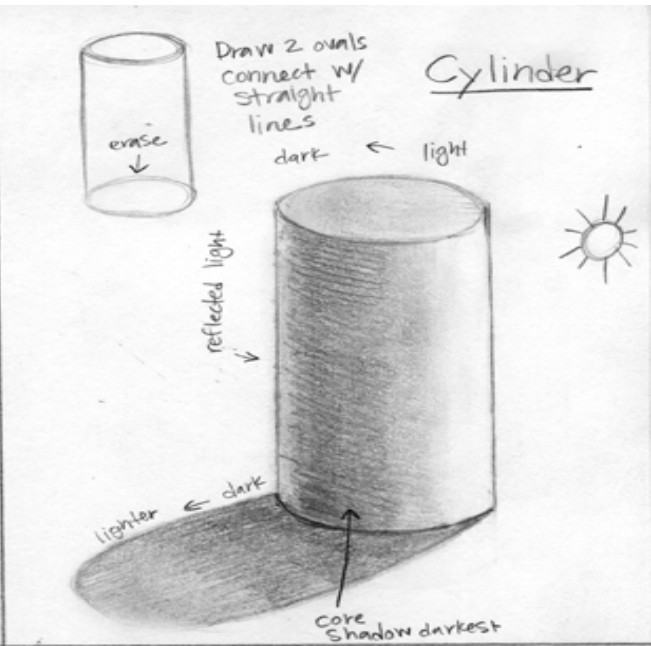 Draw 2 ovals
connect w/
straight
lines
Cylinder
erase
dark ← light
reflected light
dark
lighter
core
shadow darkest